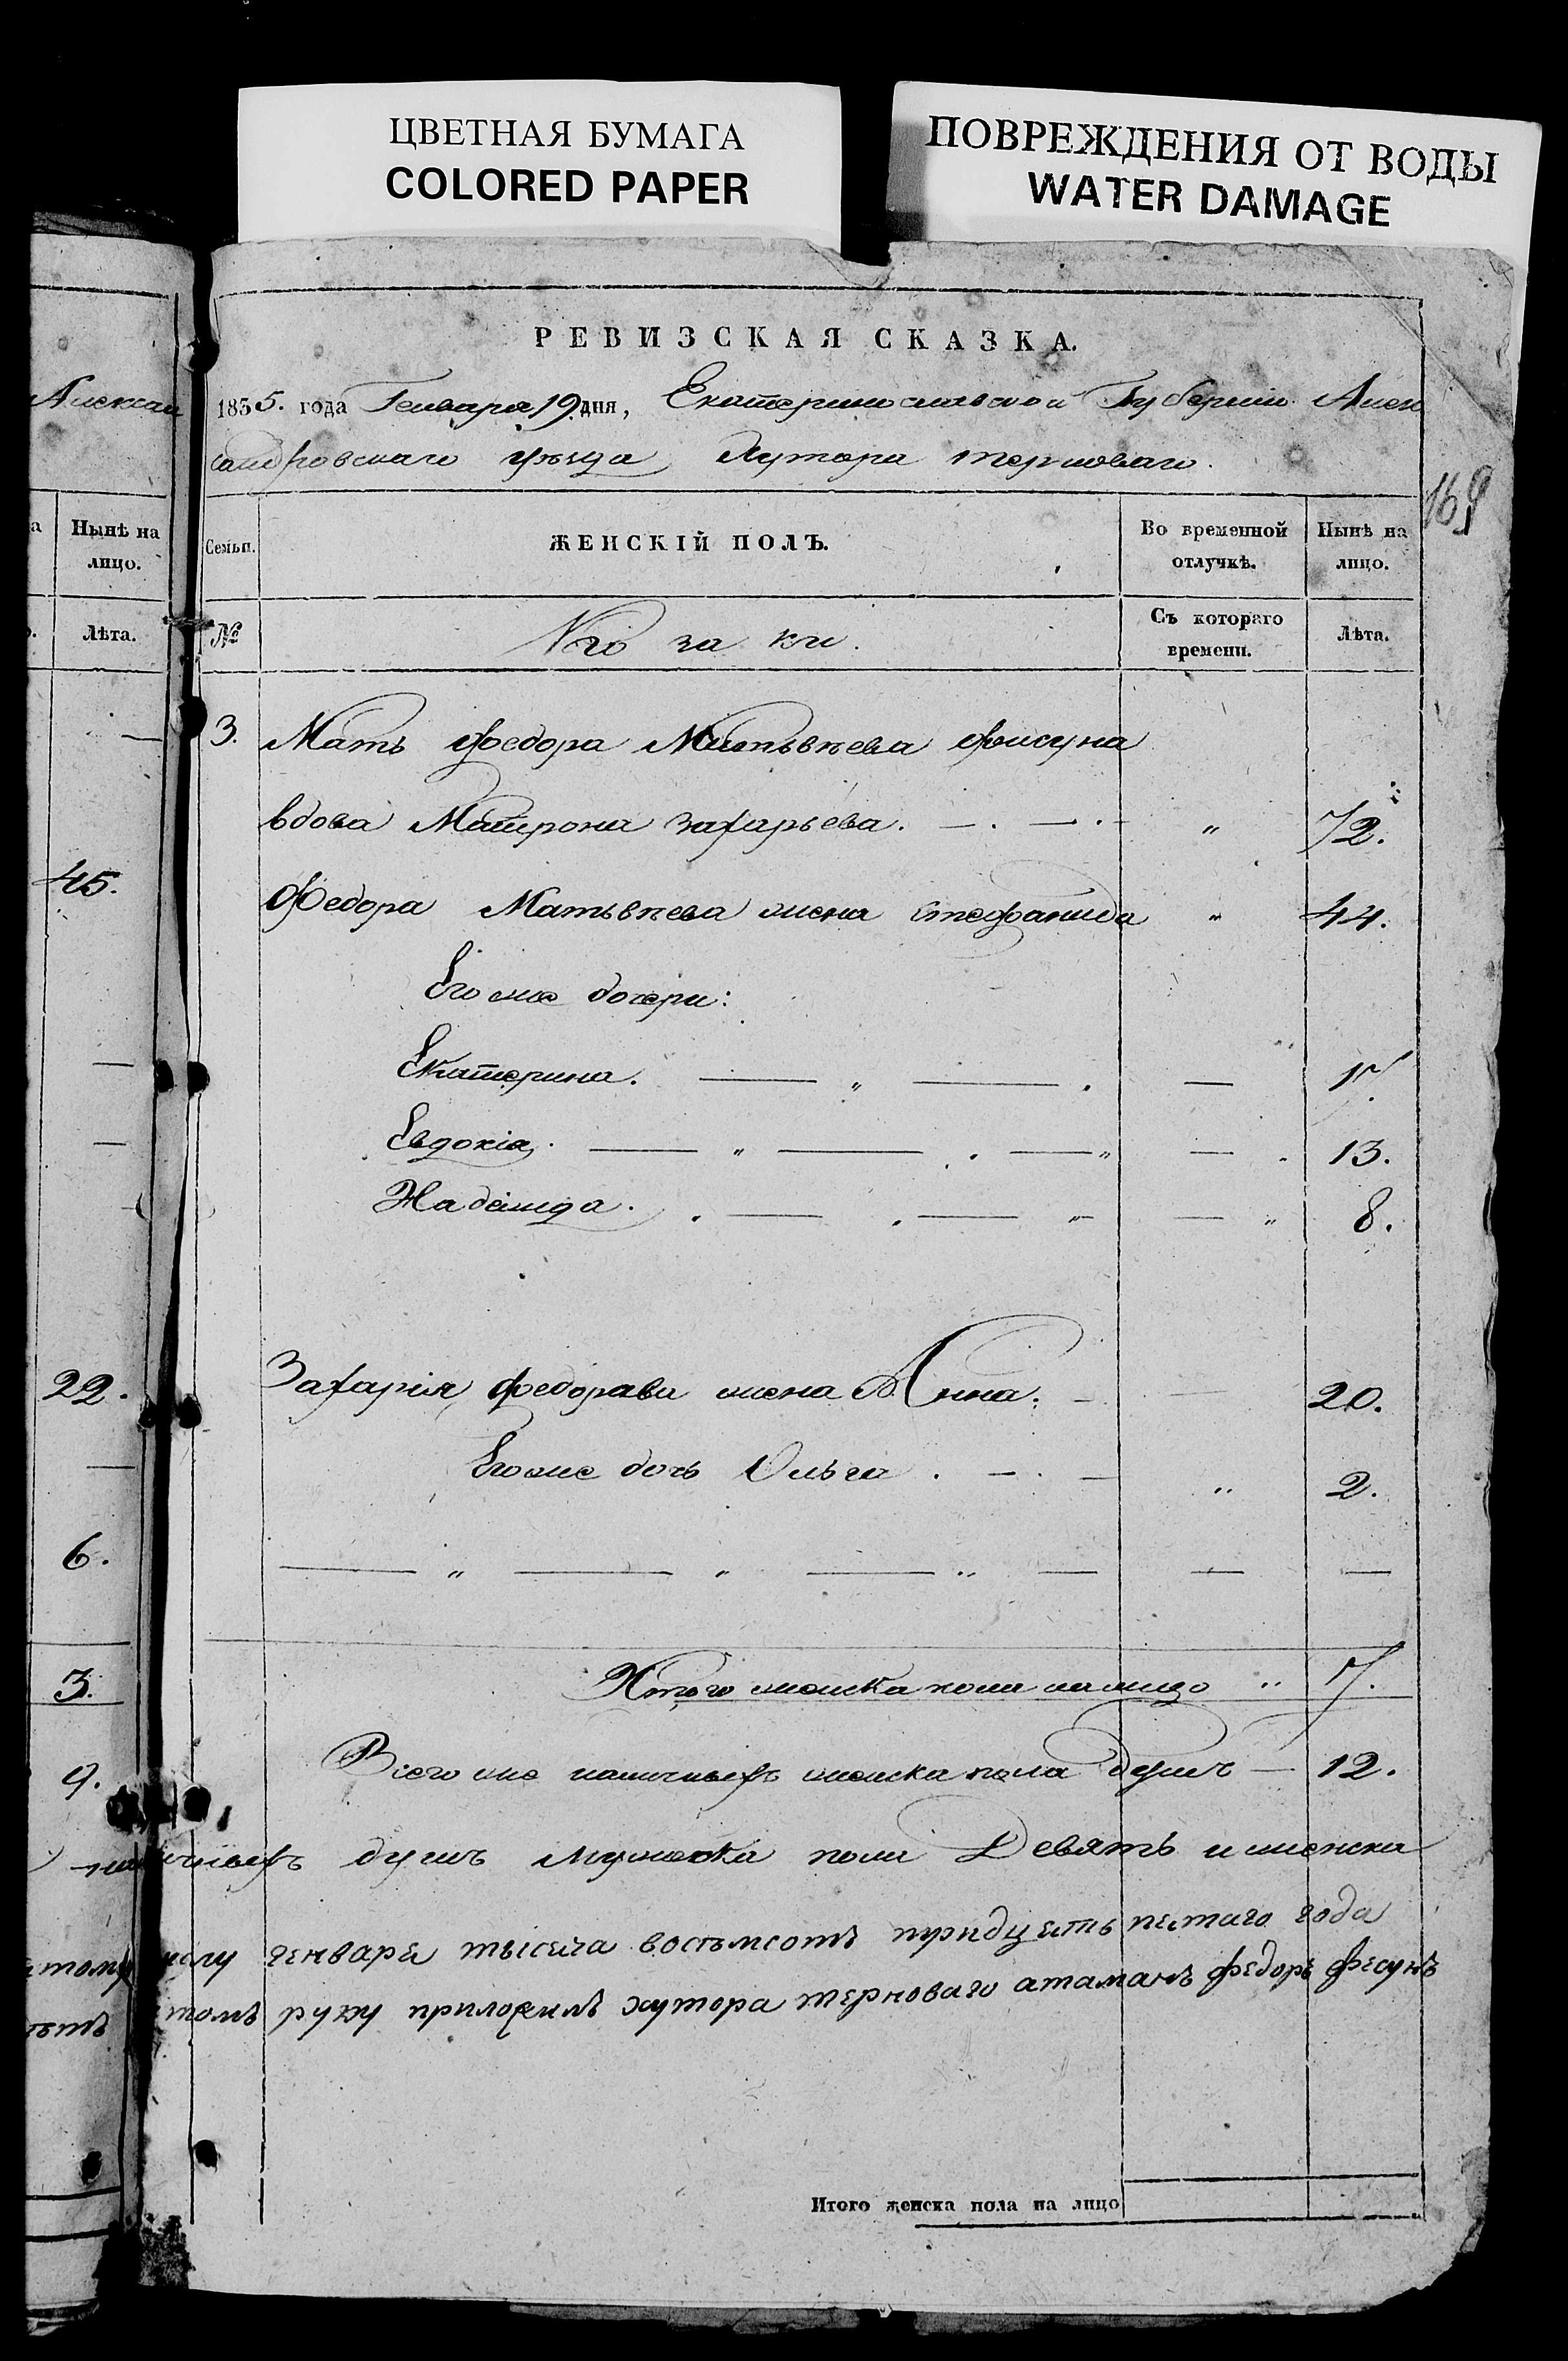 ЦВЕТНАЯ БУМАГА
COLORED PAPER
ПОВРЕЖДЕНИЯ ОТ ВОДЫ
WATER DAMAGE
РЕВИЗСКАЯ СКАЗКА.
Алексан
1835. года Генваря 19 дня, Екатеринославской Губернiи Алек
сандровскаго уѣзда Хутора терноваго.
169
а
Нынѣ на
лицо.
Семьи.
ЖЕНСКIЙ ПОЛЪ.
Во временной
отлучкѣ.
Нынѣ на
лицо.
Лѣта.
№
Козаки.
Съ котораго
времени.
Лѣта.
3. Мать Федора Матьвѣева Фисуна
вдова Матрона Захарьева. — . — . " 72.
45.
Федора Матьвѣева жена Стефанида " 44.
Его же дочери:
Екатерина. — " — . — 17.
Евдокiя. — " — . — " — 13.
Надежда. . — . — " — " 8.
22.
Захария Федорава жена Анна. — 20.
Его же дочь Ольга . — . — " 2.
6.
— " — " — " — — —
3.
Итого женска пола на лицо " 7.
9.
Всего же наличныхъ женска пола душъ — 12.
наличныхъ душъ мужеска пола Девять и женска
числу генваря тысеча восемсотъ тридцеть петаго года
томъ руку приложилъ хутора терноваго атаманъ Федоръ Фесунъ
Итого женска пола на лицо